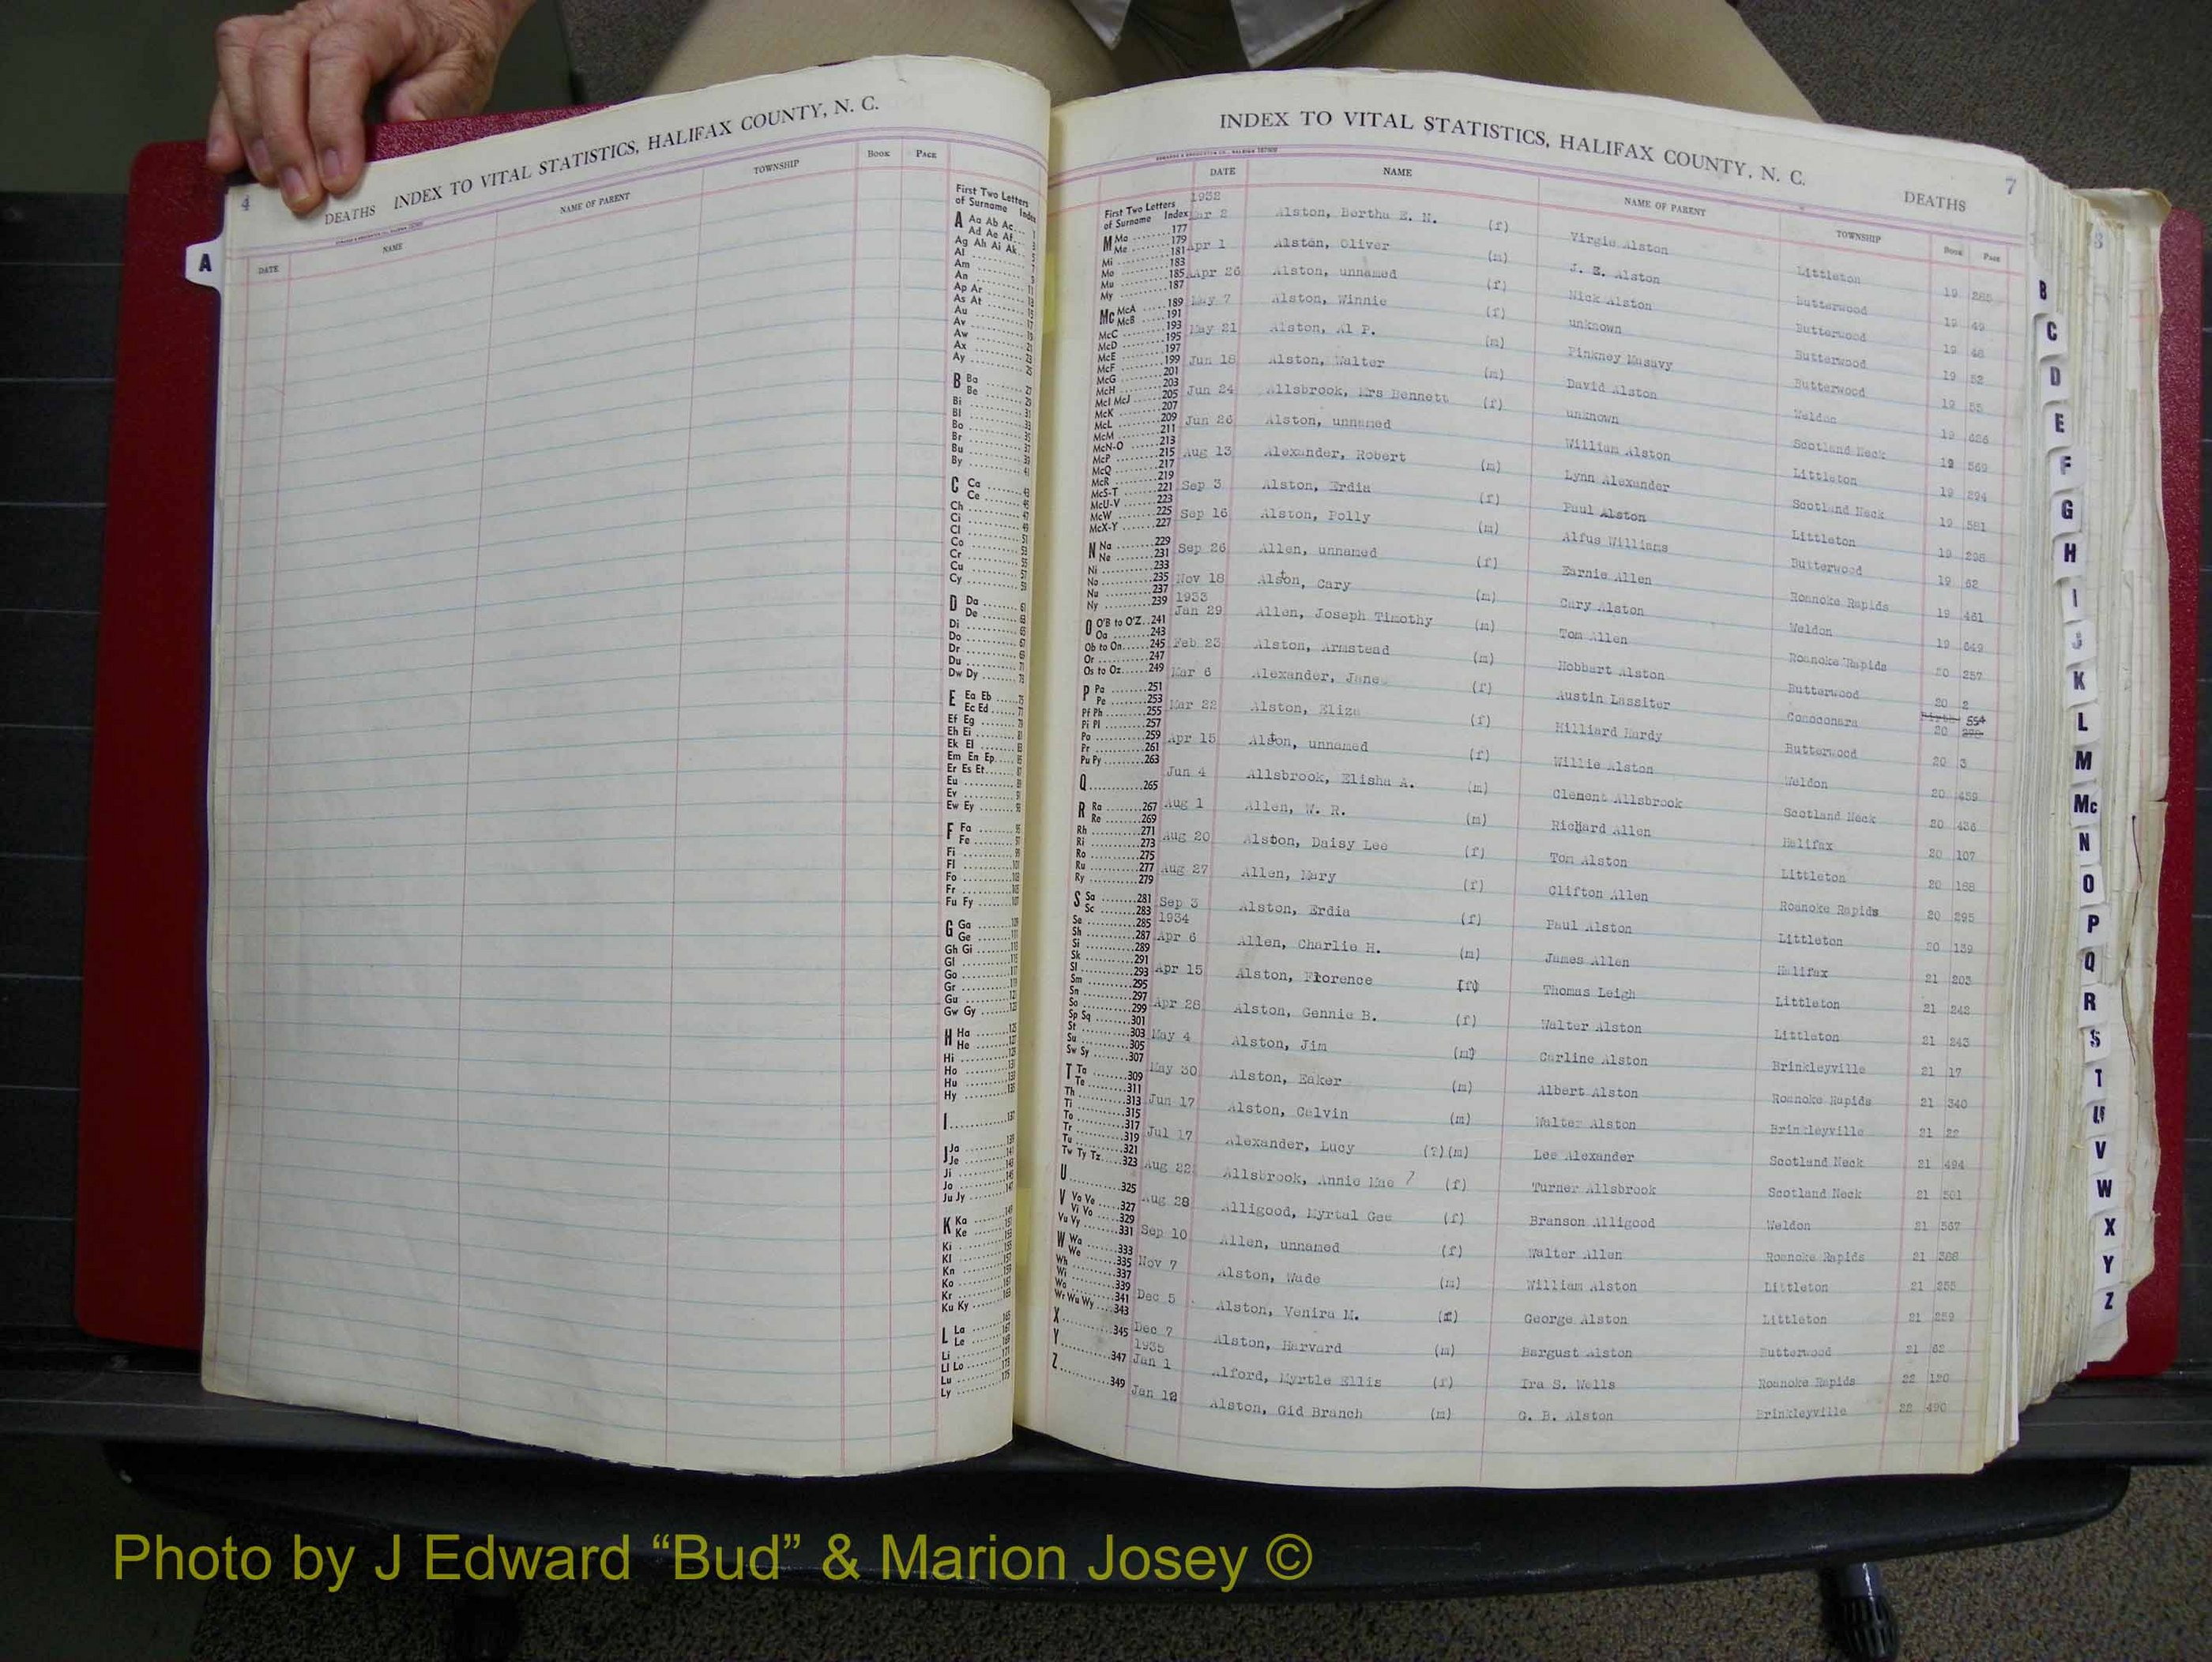 4
DEATHS INDEX TO VITAL STATISTICS, HALIFAX COUNTY, N. C.
DATE NAME NAME OF PARENT TOWNSHIP BOOK PAGE
A
First Two Letters
of Surname Index
A Aa Ab Ac
Ad Ae Af
Ag Ah Ai Ak
Al
Am
An
Ap Ar
As At
Au
Av
Aw
Ax
Ay
B Ba
Be
Bi
Bl
Bo
Br
Bu
By
C Ca
Ce
Ch
Ci
Cl
Co
Cr
Cu
Cy
D Da
De
Di
Do
Dr
Du
Dw Dy
E Ea Eb
Ec Ed
Ef Eg
Eh Ei
Ek El
Em En Ep
Er Es Et
Eu
Ev
Ew Ey
F Fa
Fe
Fi
Fl
Fo
Fr
Fu Fy
G Ga
Ge
Gh Gi
Gl
Go
Gr
Gu
Gw Gy
H Ha
He
Hi
Ho
Hu
Hy
I
J Ja
Je
Ji
Jo
Ju Jy
K Ka
Ke
Ki
Kl
Kn
Ko
Kr
Ku Ky
L La
Le
Li
Ll Lo
Lu
Ly
INDEX TO VITAL STATISTICS, HALIFAX COUNTY, N. C.
DEATHS 7
DATE NAME NAME OF PARENT TOWNSHIP BOOK PAGE
First Two Letters
of Surname Index
M Ma 177
Me 179
Mi 181
Mo 183
Mu 185
My 187
Mc McA 189
McB 191
McC 193
McD 195
McE 197
McF 199
McG 201
McH 203
McI McJ 205
McK 207
McL 209
McM 211
McN-O 213
McP 215
McQ 217
McR 219
McS-T 221
McU-V 223
McW 225
McX-Y 227
N Na 229
Ne 231
Ni 233
No 235
Nu 237
Ny 239
O O'B to O'Z 241
Oa 243
Ob to On 245
Or 247
Os to Oz 249
P Pa 251
Pe 253
Pf Ph 255
Pi Pl 257
Po 259
Pr 261
Pu Py 263
Q 265
R Ra 267
Re 269
Rh 271
Ri 273
Ro 275
Ru 277
Ry 279
S Sa 281
Sc 283
Se 285
Sh 287
Si 289
Sk 291
Sl 293
Sm 295
Sn 297
So 299
Sp Sq 301
St 303
Su 305
Sw Sy 307
T Ta 309
Te 311
Th 313
Ti 315
To 317
Tr 319
Tu 321
Tw Ty Tz 323
U 325
V Va Ve 327
Vi Vo 329
Vu Vy 331
W Wa 333
We 335
Wh 337
Wi 339
Wo 341
Wr Wu Wy 343
X 345
Y 347
Z 349
1932
Mar 2 Alston, Bertha E. N. (f) Virgie Alston Littleton 19 285
Apr 1 Alston, Oliver (m) J. E. Alston Butterwood 19 49
Apr 26 Alston, unnamed (f) Nick Alston Butterwood 19 48
May 7 Alston, Winnie (f) unknown Butterwood 19 52
May 21 Alston, Al P. (m) Pinkney Masavy Butterwood 19 55
Jun 18 Alston, Walter (m) David Alston Weldon 19 626
Jun 24 Allsbrook, Mrs Bennett (f) unknown Scotland Neck 19 569
Jun 26 Alston, unnamed William Alston Littleton 19 294
Aug 13 Alexander, Robert (m) Lynn Alexander Scotland Neck 19 581
Sep 3 Alston, Erdia (f) Paul Alston Littleton 19 298
Sep 16 Alston, Polly (m) Alfus Williams Butterwood 19 62
Sep 26 Allen, unnamed (f) Earnie Allen Roanoke Rapids 19 461
Nov 18 Alston, Cary (m) Cary Alston Weldon 19 649
1933
Jan 29 Allen, Joseph Timothy (m) Tom Allen Roanoke Rapids 20 257
Feb 23 Alston, Armstead (m) Hobbert Alston Butterwood 20 2
Mar 6 Alexander, Jane (f) Austin Lassiter Conoconara 20 554
Mar 22 Alston, Eliza (f) Hilliard Hardy Butterwood 20 3
Apr 15 Alston, unnamed (f) Willie Alston Weldon 20 459
Jun 4 Allsbrook, Elisha A. (m) Clement Allsbrook Scotland Neck 20 436
Aug 1 Allen, W. R. (m) Richard Allen Halifax 20 107
Aug 20 Alston, Daisy Lee (f) Tom Alston Littleton 20 168
Aug 27 Allen, Mary (f) Clifton Allen Roanoke Rapids 20 295
Sep 3 Alston, Erdia (f) Paul Alston Littleton 20 139
1934
Apr 6 Allen, Charlie H. (m) James Allen Halifax 21 203
Apr 15 Alston, Florence (f) Thomas Leigh Littleton 21 242
Apr 28 Alston, Gennie B. (f) Walter Alston Littleton 21 243
May 4 Alston, Jim (m) Carline Alston Brinkleyville 21 17
May 30 Alston, Eaker (m) Albert Alston Roanoke Rapids 21 340
Jun 17 Alston, Calvin (m) Walter Alston Brinkleyville 21 22
Jul 17 Alexander, Lucy (?)(m) Lee Alexander Scotland Neck 21 494
Aug 22 Allsbrook, Annie Mae (f) Turner Allsbrook Scotland Neck 21 501
Aug 28 Alligood, Myrtal Gee (f) Branson Alligood Weldon 21 567
Sep 10 Allen, unnamed (f) Walter Allen Roanoke Rapids 21 386
Nov 7 Alston, Wade (m) William Alston Littleton 21 255
Dec 5 Alston, Venira M. (f) George Alston Littleton 21 259
Dec 7 Alston, Harvard (m) Bargust Alston Butterwood 21 62
1935
Jan 1 Alford, Myrtle Ellis (f) Ira S. Wells Roanoke Rapids 22 120
Jan 18 Alston, Gid Branch (m) G. B. Alston Brinkleyville 22 490
B
C
D
E
F
G
H
I
J
K
L
M
Mc
N
O
P
Q
R
S
T
U
V
W
X
Y
Z
Photo by J Edward “Bud” & Marion Josey ©